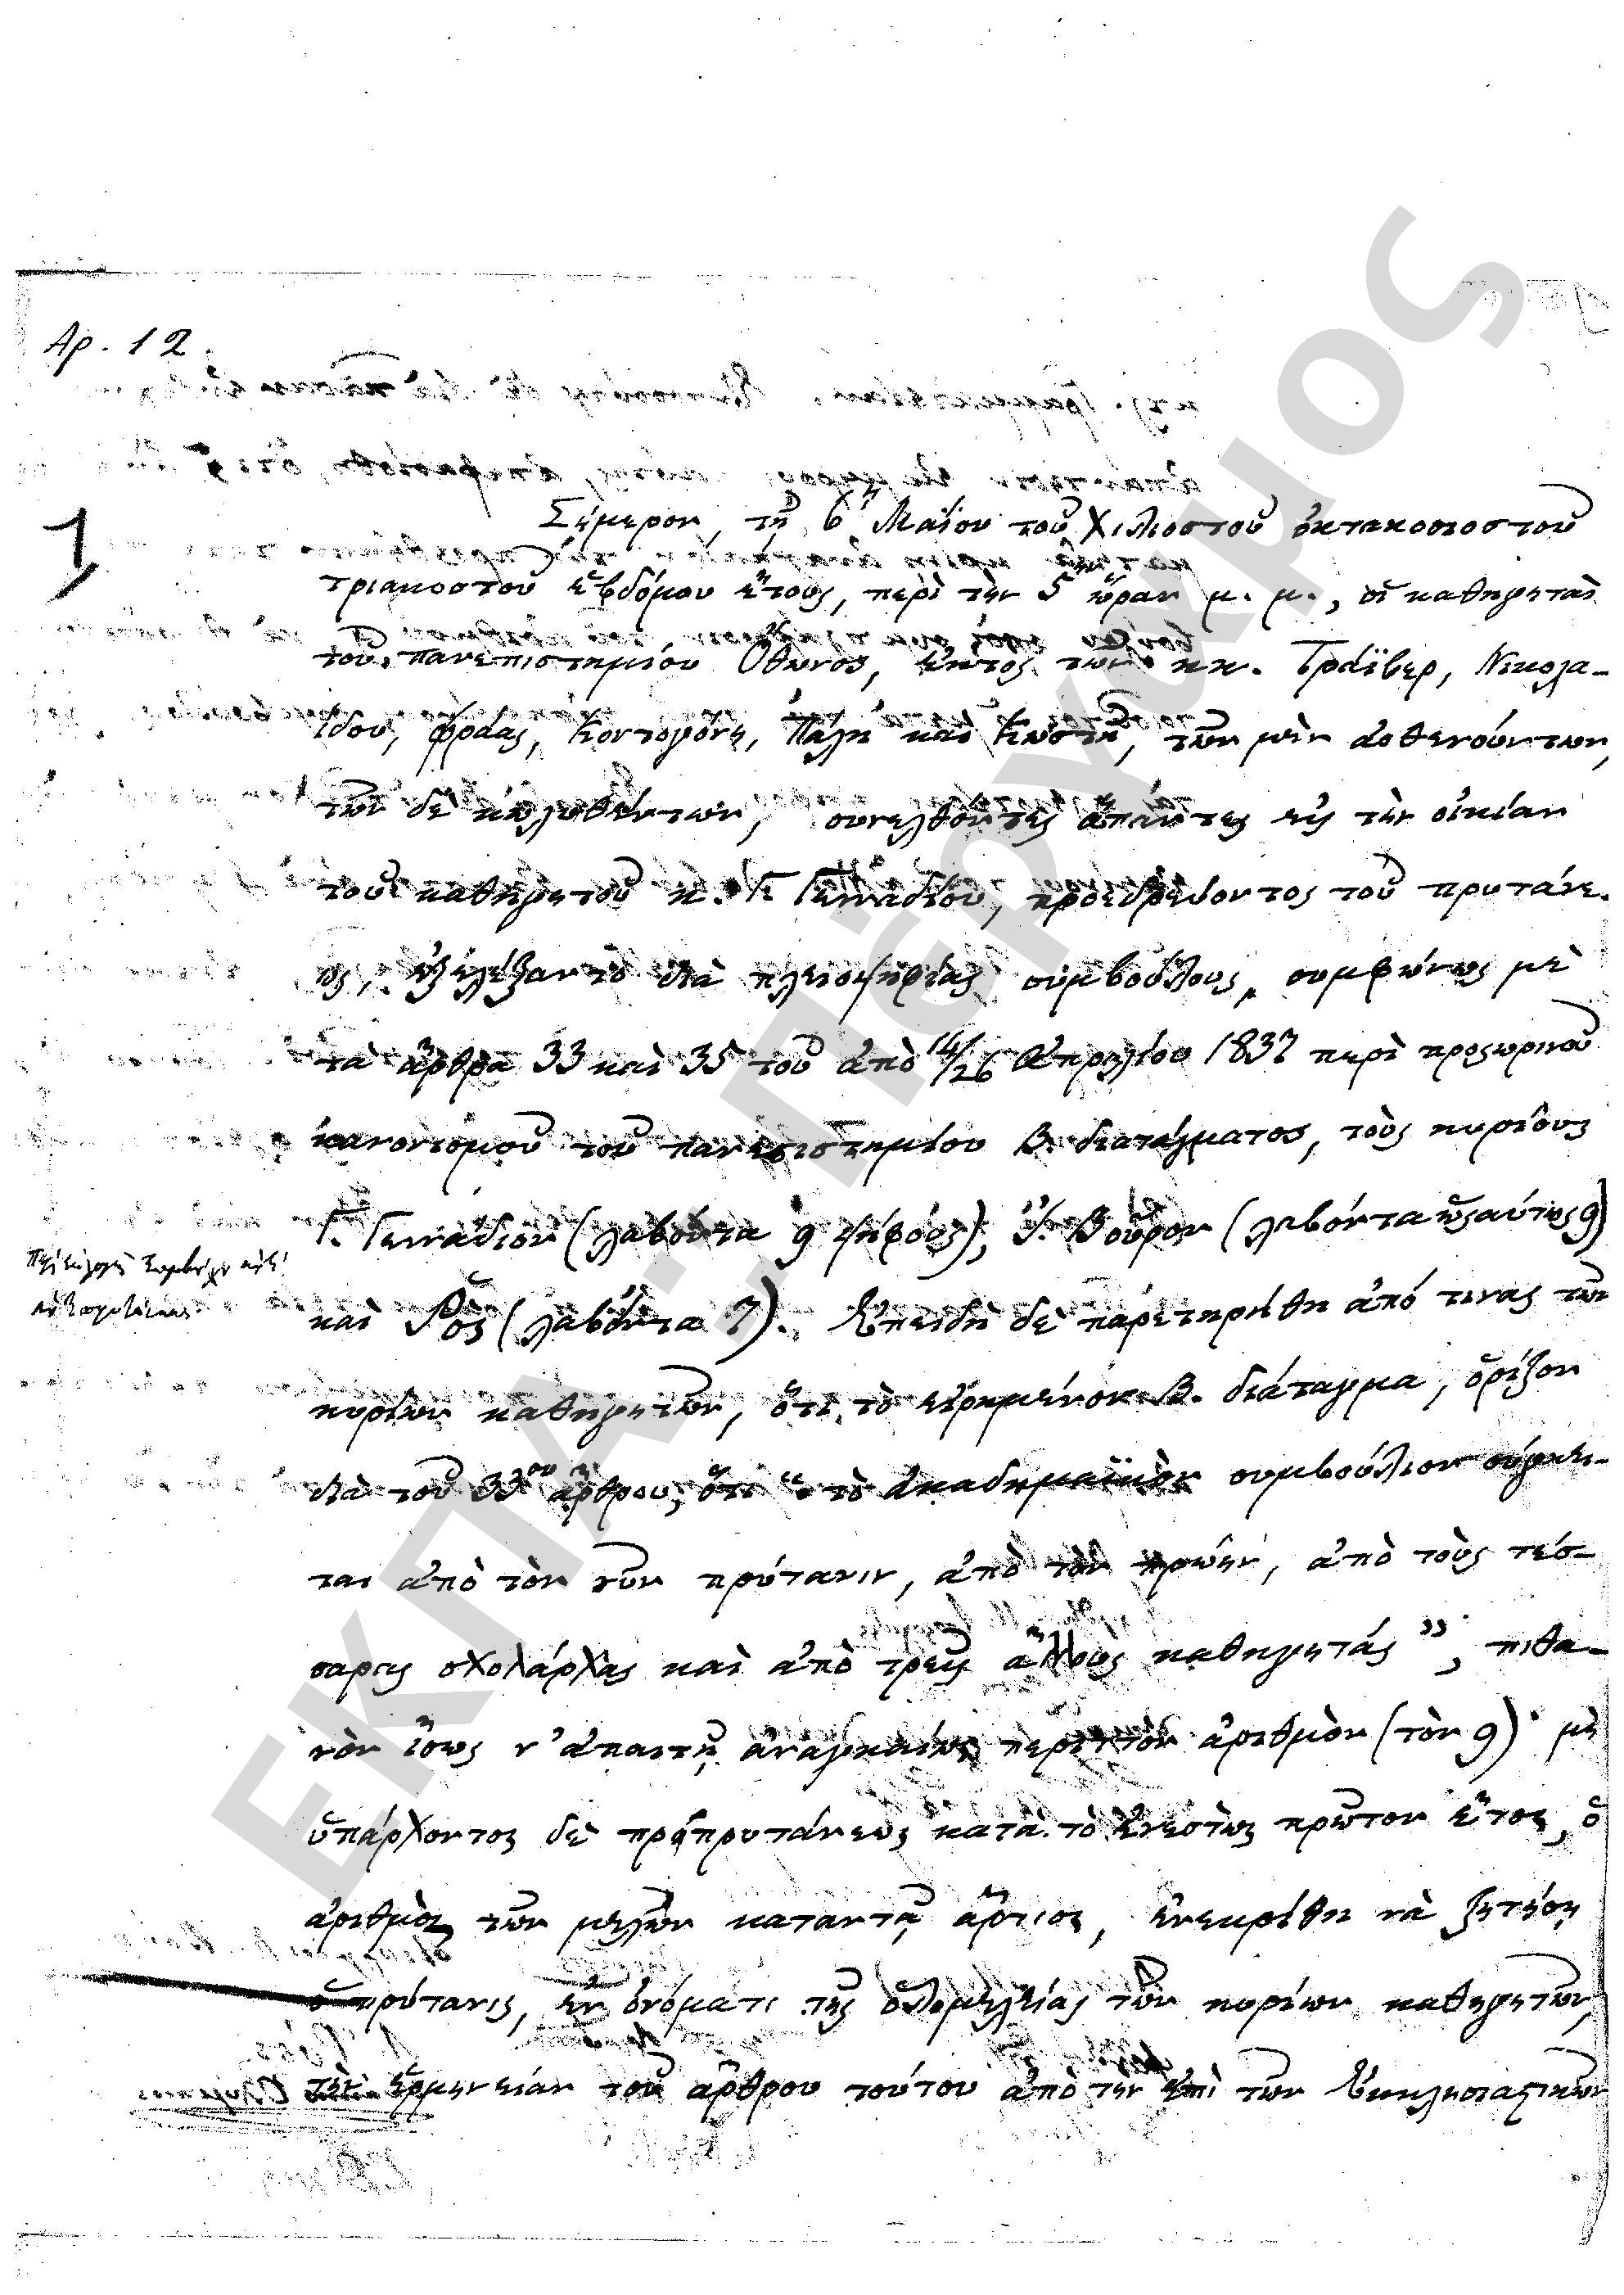 Αρ. 12.
1
Σήμερον, τῇ 6ῃ Μαΐου τοῦ χιλιοστοῦ ὀκτακοσιοστοῦ
τριακοστοῦ ἑβδόμου ἔτους, περὶ τὴν 5ην ὥραν μ. μ., οἱ καθηγηταὶ
τοῦ πανεπιστημίου Ὄθωνος, ἐκτὸς τῶν κκ. Τράϊβερ, Νικολα-
ΐδου, Φράας, Κοντογόνη, Πάλη καὶ Κωστῆ, τῶν μὲν ἀσθενούντων,
τῶν δὲ κωλυθέντων, συνελθόντες ἅπαντες εἰς τὴν οἰκίαν
τοῦ καθηγητοῦ κ. Γ. Γενναδίου, προεδρεύοντος τοῦ πρυτάνε-
ως, ἐξελέξαντο διὰ πλειοψηφίας συμβούλους, συμφώνως μὲ
τὰ ἄρθρα 33 καὶ 35 τοῦ ἀπὸ 14/26 Ἀπριλίου 1837 περὶ προσωρινοῦ
κανονισμοῦ τοῦ πανεπιστημίου Β. διατάγματος, τοὺς κυρίους
Γ. Γεννάδιον (λαβόντα 9 ψήφους), Ἰ. Βοῦρον (λαβόντα ὡσαύτως 9)
Περὶ ἐκλογῆς
καὶ Ῥὸς (λαβόντα 7). Ἐπειδὴ δὲ παρετηρήθη ἀπό τινας τῶν
κυρίων καθηγητῶν, ὅτι τὸ εἰρημένον Β. διάταγμα, ὁρίζον
διὰ τοῦ 33ου ἄρθρου, ὅτι “τὸ ἀκαδημαϊκὸν συμβούλιον σύγκει-
ται ἀπὸ τὸν νῦν πρύτανιν, ἀπὸ τὸν πρώην, ἀπὸ τοὺς τέσ-
σαρεις σχολάρχας καὶ ἀπὸ τρεῖς ἄλλους καθηγητάς”, πιθα-
νὸν ἴσως ν’ ἀπαιτῇ ἀναγκαίως περιττὸν ἀριθμὸν (τὸν 9)· μὴ
ὑπάρχοντος δὲ προπρυτάνεως κατὰ τὸ ἐνεστὼς πρῶτον ἔτος, ὁ
ἀριθμὸς τῶν μελῶν καταντᾷ ἄρτιος, ἐνεκρίθη νὰ ζητήσῃ
ὁ πρύτανις, ἐν ὀνόματι τῆς ὁλομελείας τῶν κυρίων καθηγητῶν,
τὴν ἑρμηνείαν τοῦ ἄρθρου τούτου ἀπὸ τὴν ἐπὶ τῶν Ἐκκλησιαστικῶν